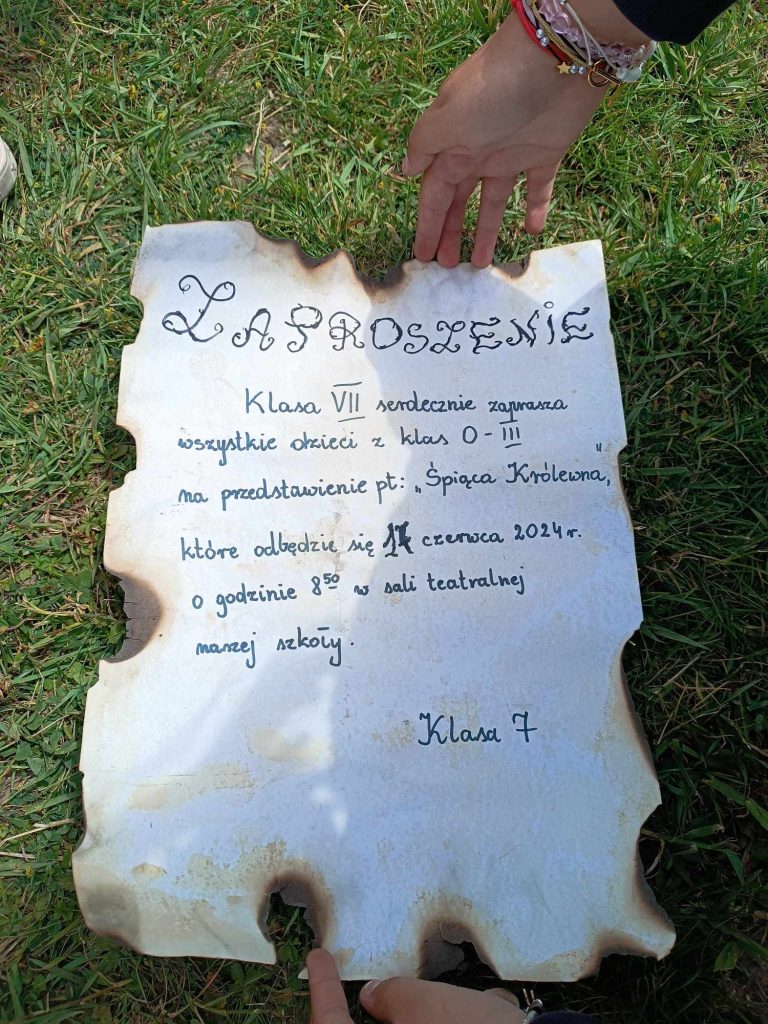 ZAPROSZENIE
Klasa VII serdecznie zaprasza
wszystkie dzieci z klas 0-III
na przedstawienie pt: „Śpiąca Królewna"
które odbędzie się czerwca 2024 r.
o godzinie 8⁵⁰ w sali teatralnej
naszej szkoły.
Klasa 7